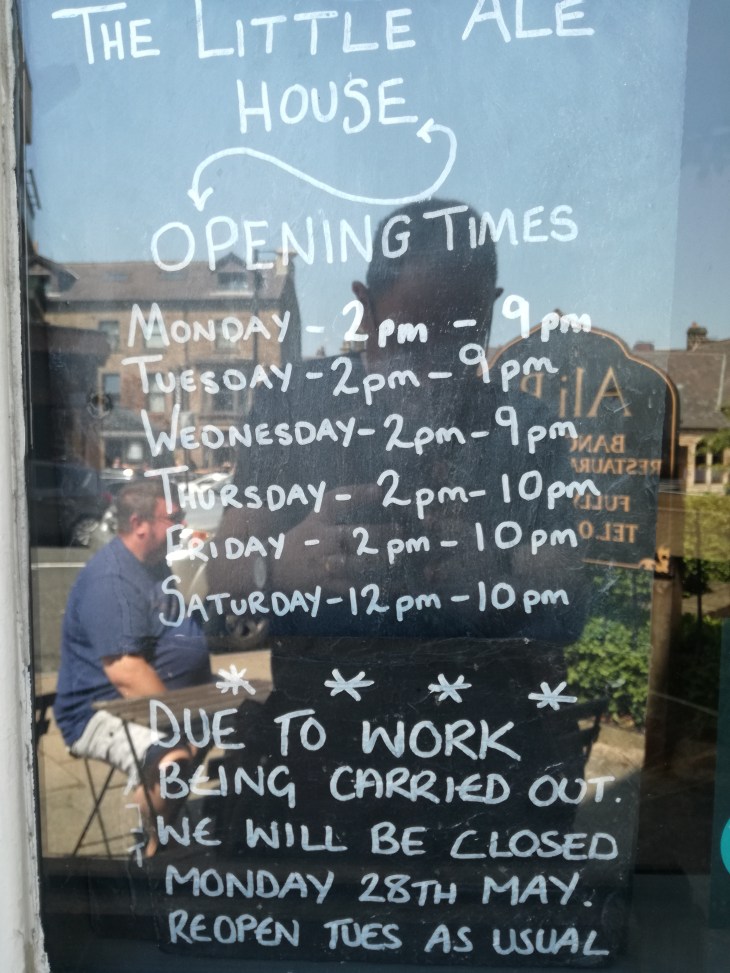 THE LITTLE ALE
HOUSE
OPENING TIMES
MONDAY - 2pm - 9pm
TUESDAY - 2pm - 9pm
WEDNESDAY - 2pm - 9pm
THURSDAY - 2pm - 10pm
FRIDAY - 2pm - 10pm
SATURDAY - 12pm - 10pm
* * * *
DUE TO WORK
BEING CARRIED OUT.
WE WILL BE CLOSED
MONDAY 28TH MAY.
REOPEN TUES AS USUAL